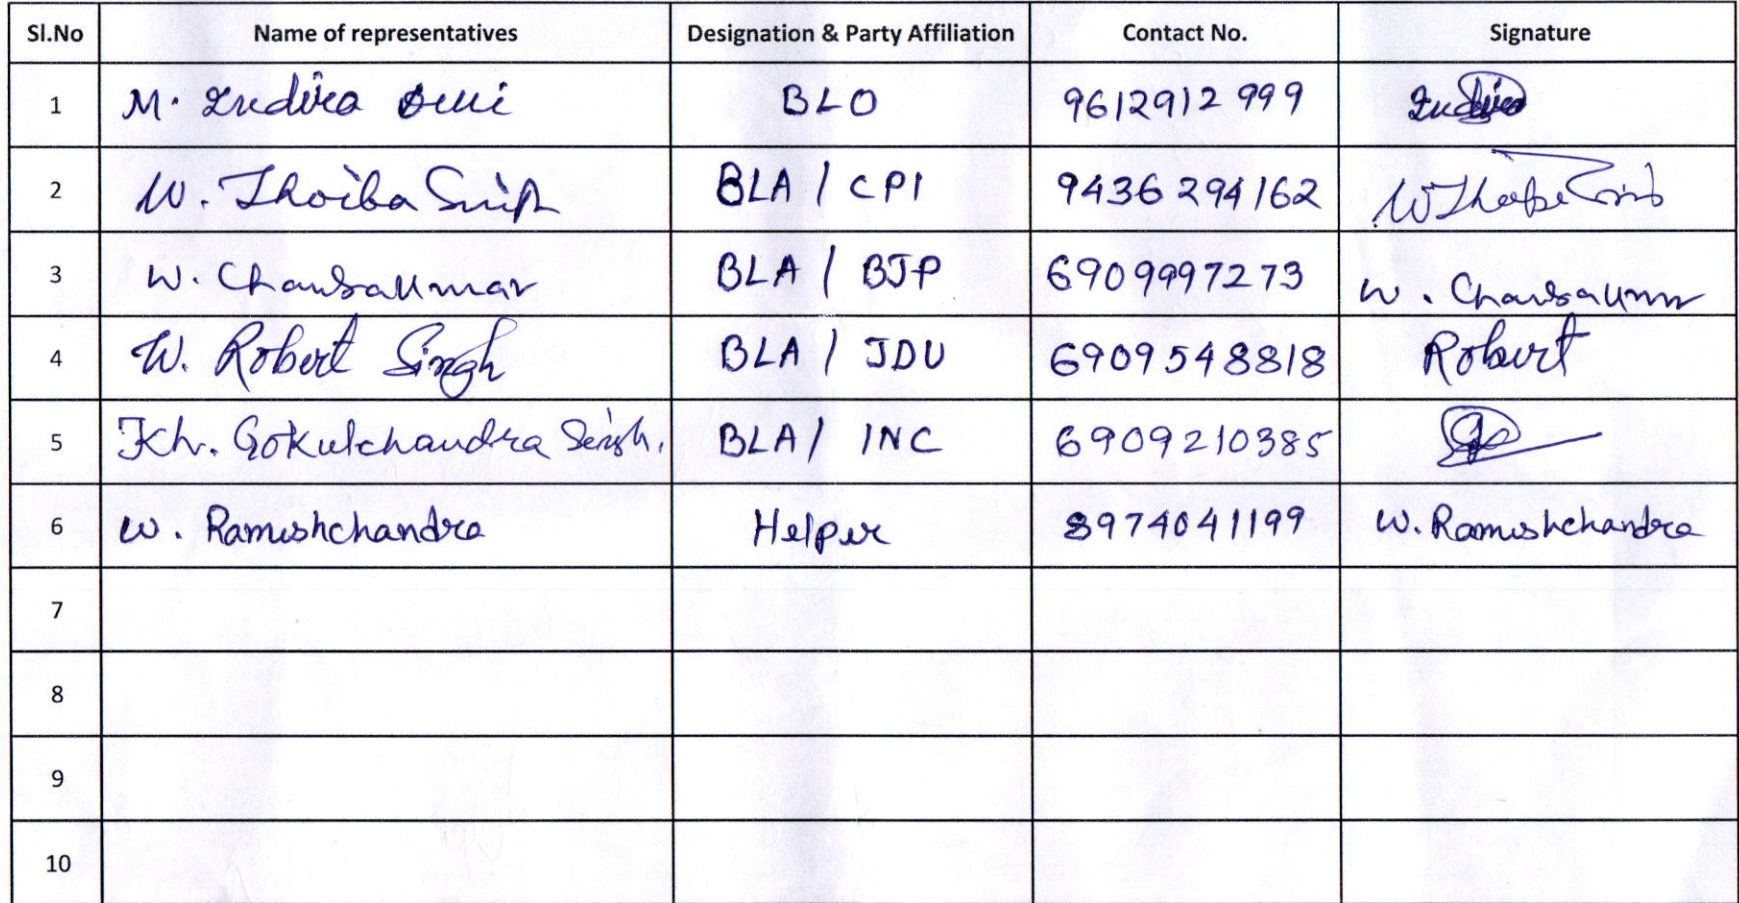 Sl.No Name of representatives Designation & Party Affiliation Contact No. Signature
1 M. Indira Devi BLO 9612912999 Indira
2 W. Thoiba Singh BLA / CPI 9436294162 W Thoiba Singh
3 W. BLA / BJP 6909997273 W.
4 W. Robert Singh BLA / JDU 6909548818 Robert
5 Kh. Gokulchandra Singh. BLA / INC 6909210385
6 W. Rameshchandra Helper 8974041199 W. Rameshchandra
7
8
9
10